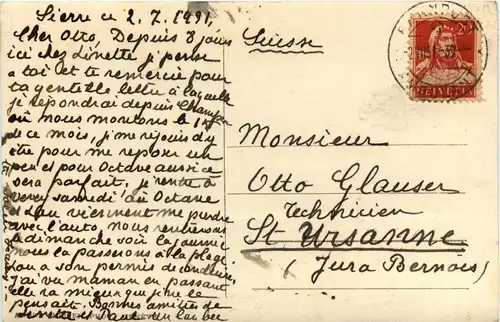 Sierre le 2. 7. 1931.
Cher Otto, Depuis 8 jours
ici chez Linette je pense
a toi et te remercie pour
ta gentille lettre à laquelle
je répondrai depuis
où nous montons le
de ce mois, je me rejouis d'y
être pour me reposer un
peu et pour Octave aussi ce
sera parfait, je rentre à
Vevey samedi Octave
et Lau viennent me prendre
avec l'auto, nous rentrerons
le dimanche soir la journée
nous la passerons à la plage
Lau a son permis de conduire,
j'ai vu maman en passant
elle va mieux que je ne le
pensait. Bonnes amitiés de
Linette et Paul un bec
Suisse
HELVETIA
Monsieur
Otto Glauser
Technicien
St Ursanne
(Jura Bernois)